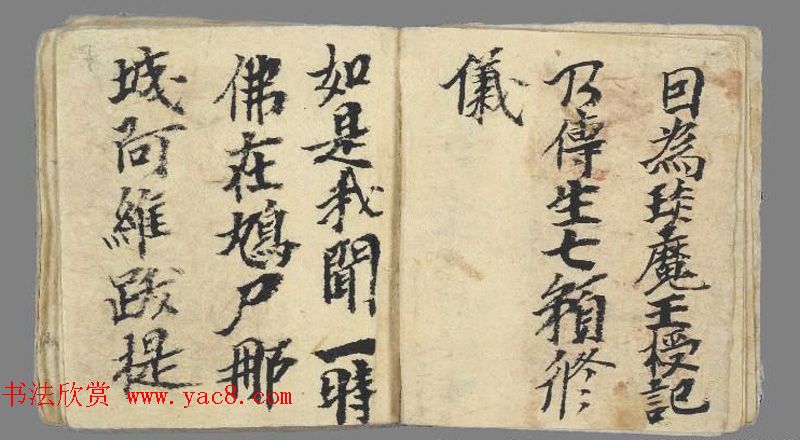 因為琰魔王授記
乃傳生七籟修
儀
如是我聞一時
佛在鳩尸那
城阿維跋提
书法欣赏 www.yac8.com